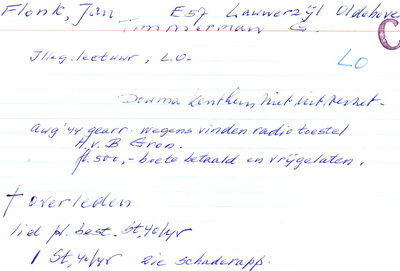 Flonk, Jan E57 Lauwerzijl Oldehove
Timmerman G.
C
Illeg. lectuur, L.O.
LO
Douma kent hem niet uit verzet.
Aug '44 gearr. wegens vinden radiotoestel
H.v.B Gron.
fl. 500,- boete betaald en vrijgelaten.
† overleden
lid pl. best. St, 40/45
1 St, 40/45 zie schaderapp.